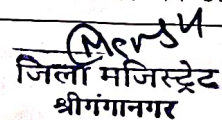 जिला मजिस्ट्रेट
श्रीगंगानगर